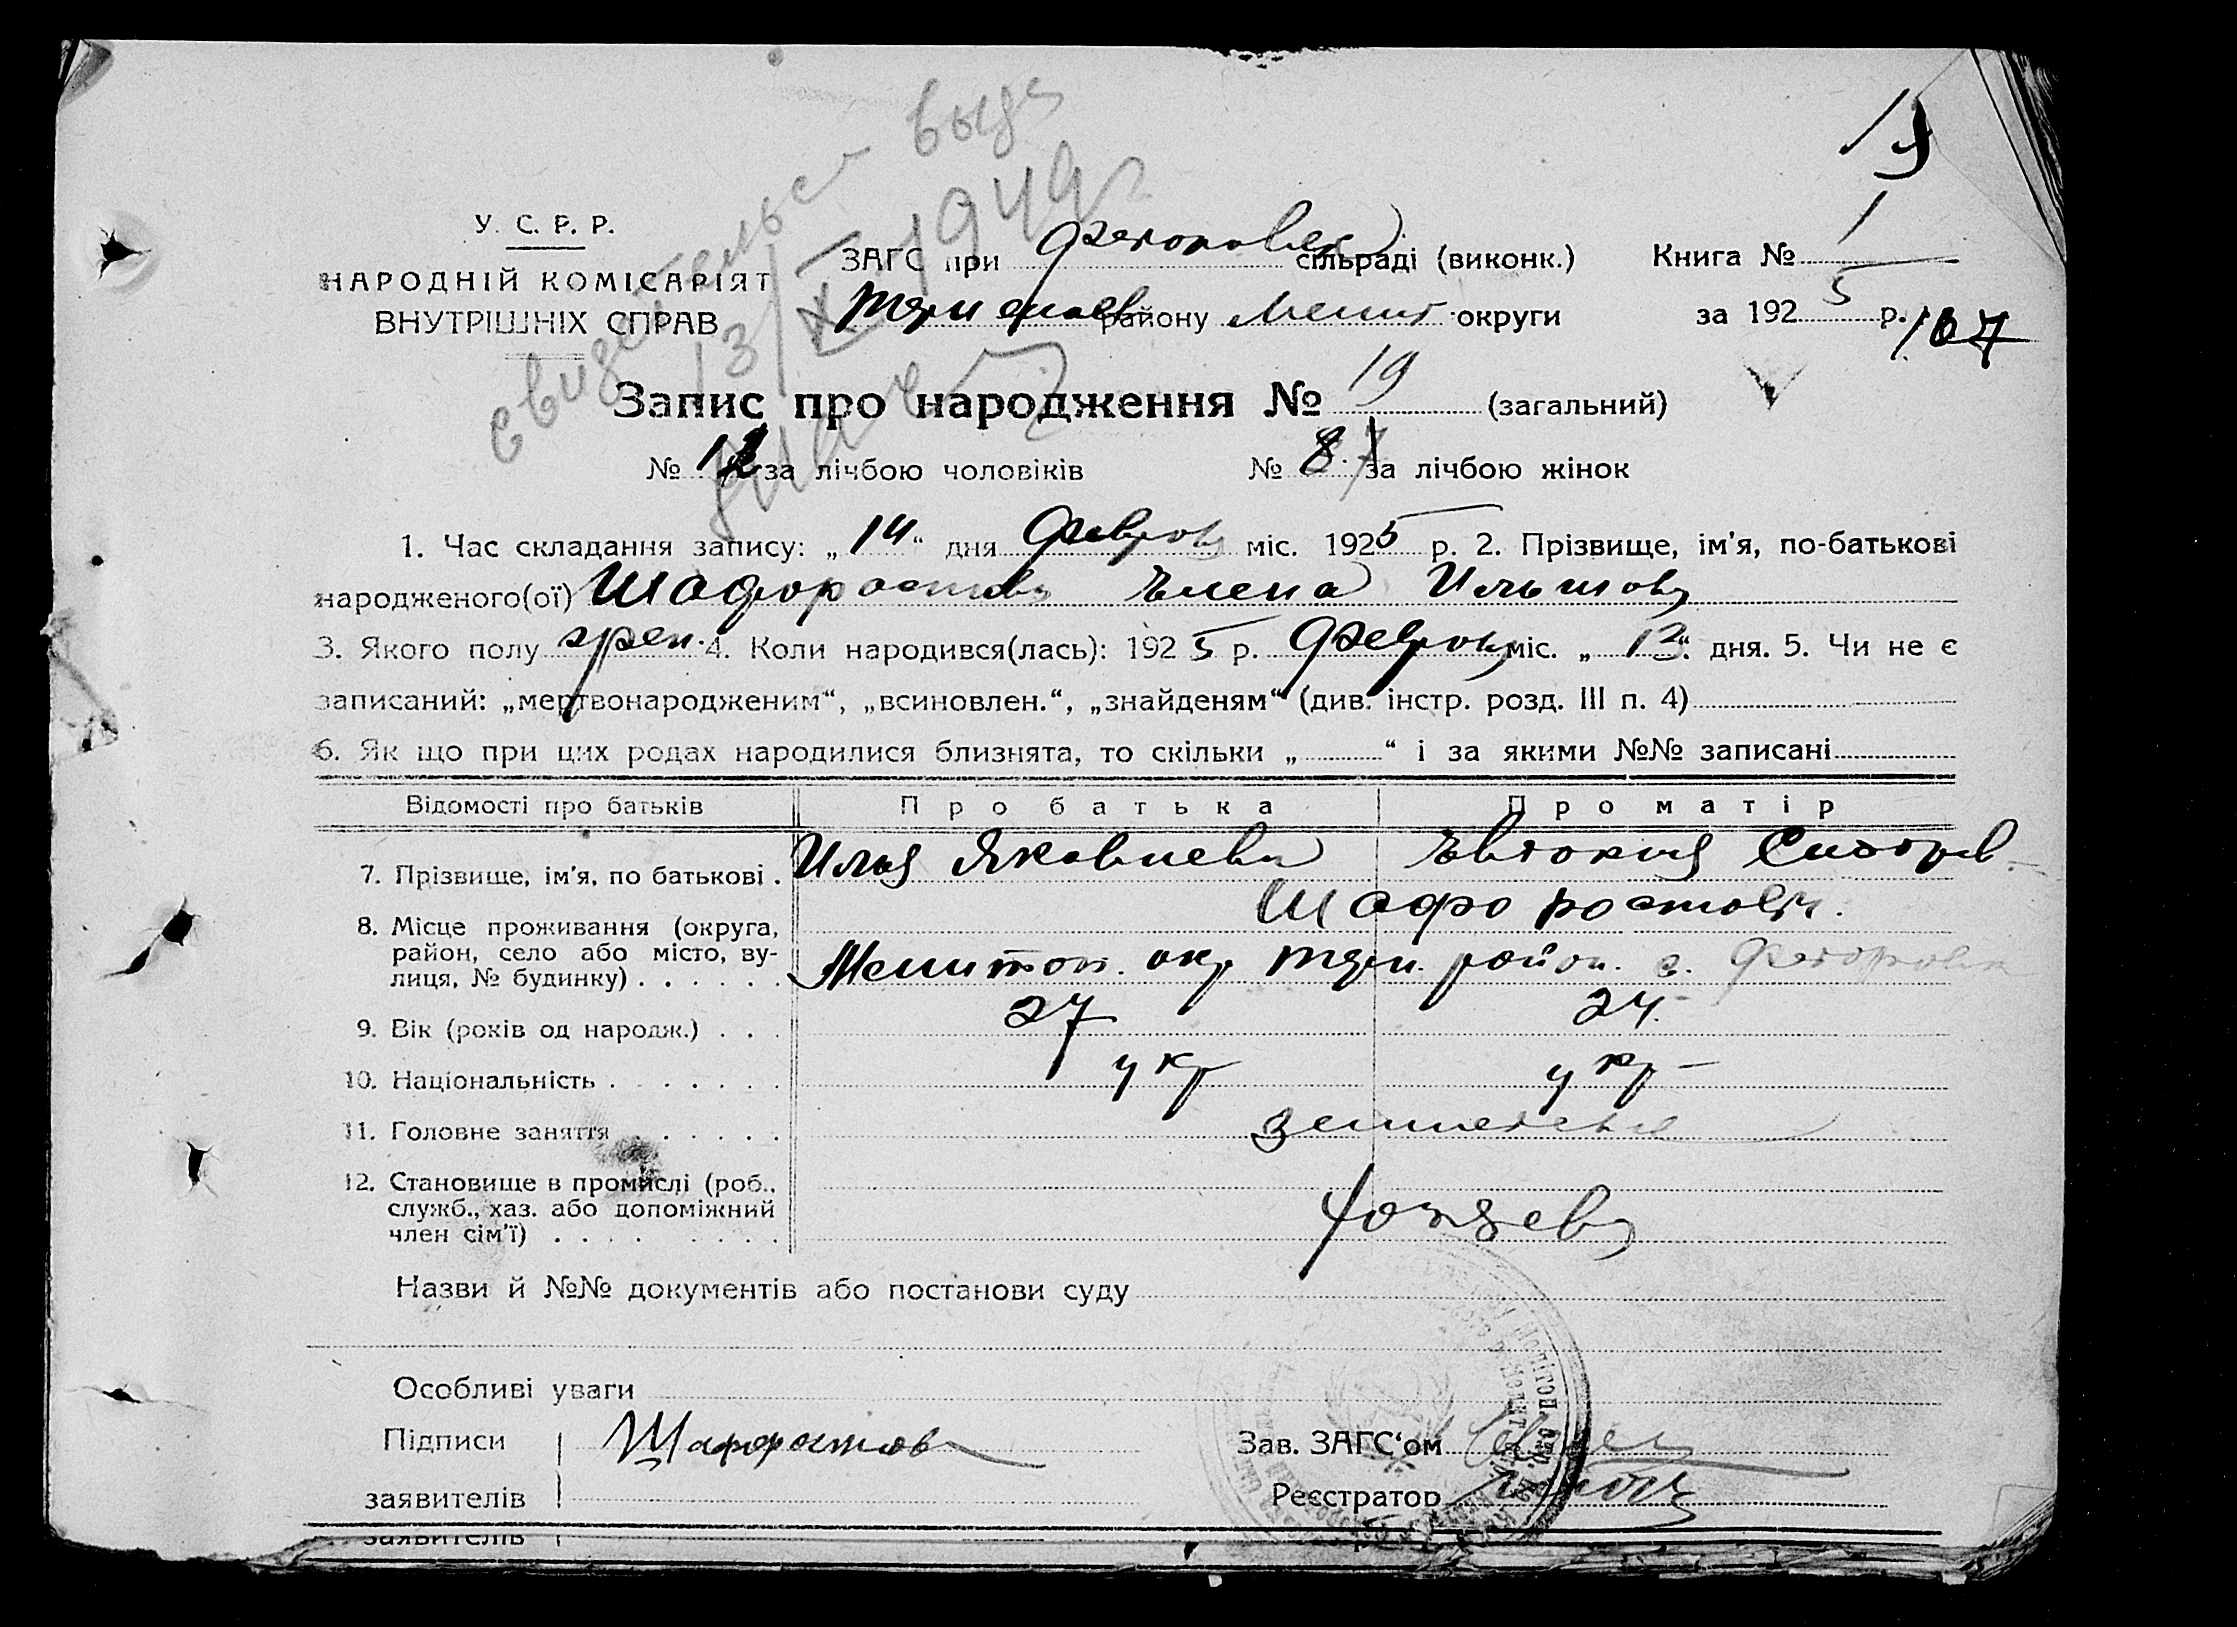 свидетельст выда
13/XI 1949г
19
У. С. Р. Р.
НАРОДНІЙ КОМІСАРІЯТ
ВНУТРІШНІХ СПРАВ
ЗАГС при Федоровск сільраді (виконк.)
району Мелит округи
Книга № 1
за 1925 р.
107
Запис про народження № 19 (загальний)
№ 12 за лічбою чоловіків № 8 7 за лічбою жінок
1. Час складання запису: „14“ дня Феврал міс. 1925 р. 2. Прізвище, ім'я, по-батькові
народженого(ої) Шафоростова Елена Ильинова
3. Якого полу жен. 4. Коли народився(лась): 1925 р. Феврал міс. „13“ дня. 5. Чи не є
записаний: „мертвонародженим“, „всиновлен.“, „знайденям“ (див. інстр. розд. III п. 4)
6. Як що при цих родах народилися близнята, то скільки „ “ і за якими №№ записані
Відомості про батьків Про батька Про матір
7. Прізвище, ім'я, по батькові . Илья Яковлевич Евдокия Сидоров
Шафоростовы.
8. Місце проживання (округа,
район, село або місто, вулиця, № будинку) . . . . . . Мелитоп. окр район. с. Федоровка
9. Вік (років од народж.) . . . 27 24.
10. Національність . . . . . . . укр укр
11. Головне заняття . . . . . . землед
12. Становище в промислі (роб.,
служб., хаз. або допоміжний
член сім'ї) . . . . . . . . . хозяева
Назви й №№ документів або постанови суду
Особливі уваги
Підписи Шафоростов Зав. ЗАГС'ом
заявителів Реєстратор
заявителів